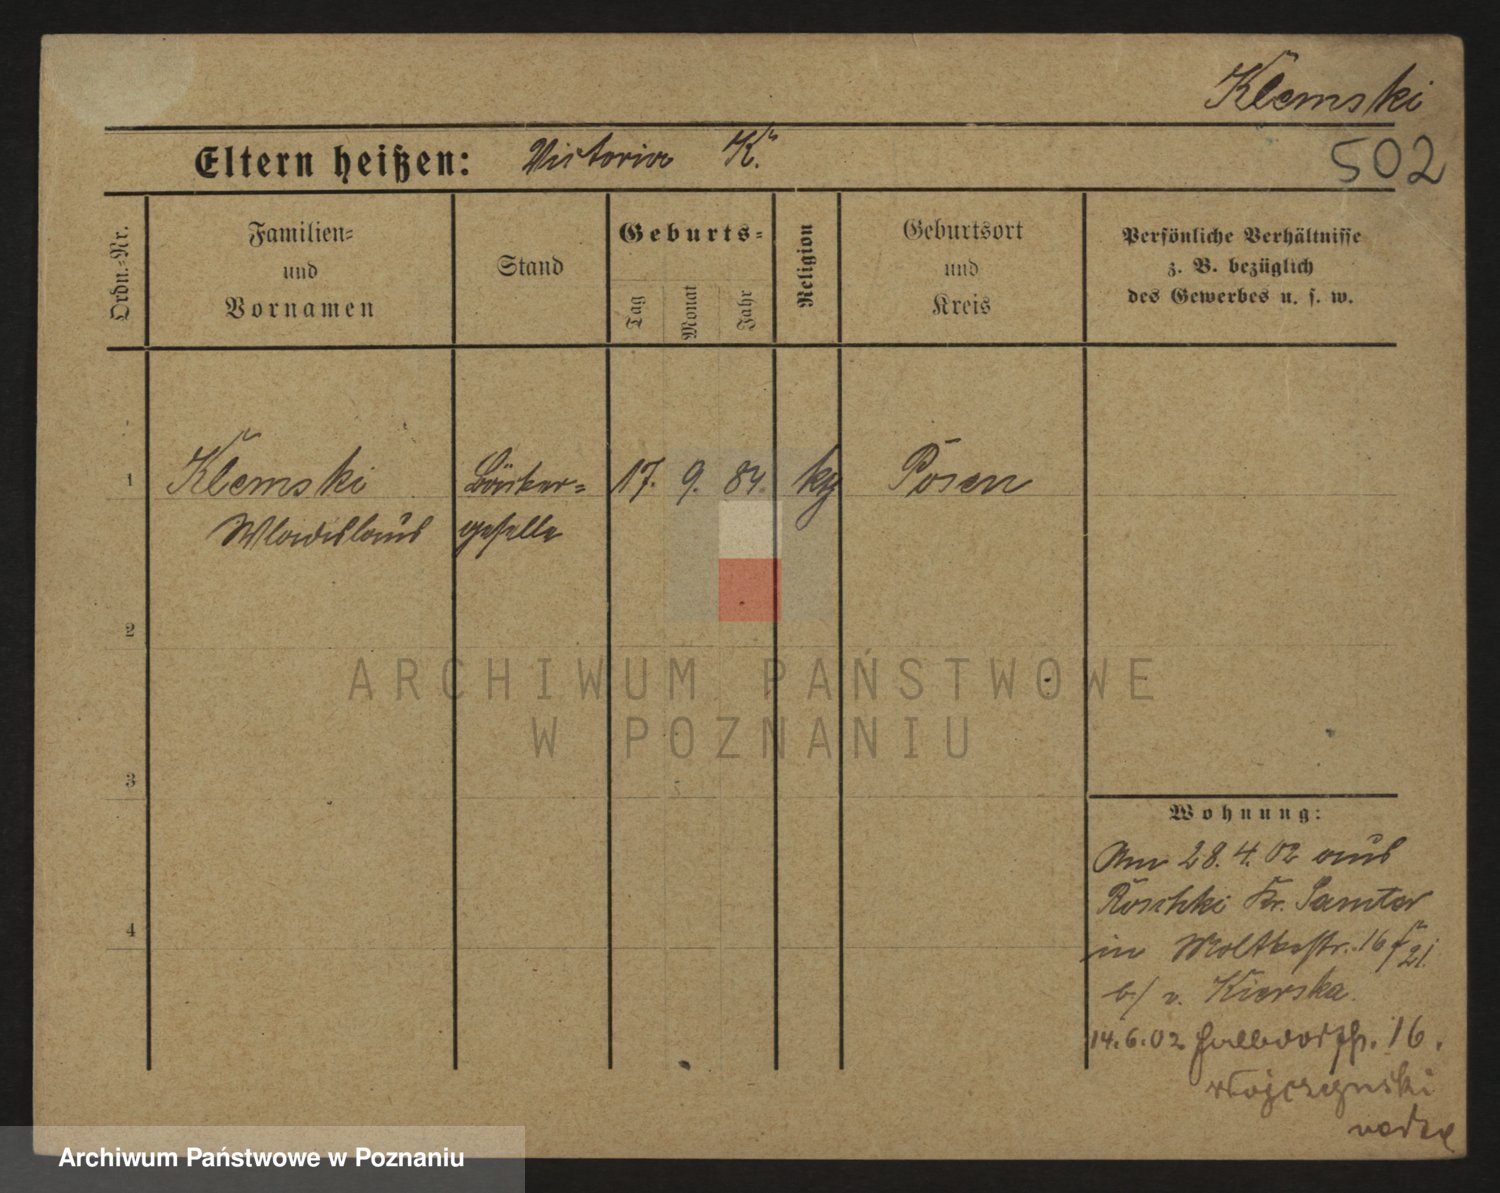 Klemski
502
Eltern heißen: Victoria K.
Ordn.-Nr.
Familien-
und
Vornamen
Stand
Geburts-
Tag
Monat
Jahr
Religion
Geburtsort
und
Kreis
Persönliche Verhältnisse
z. B. bezüglich
des Gewerbes u. s. w.
1 Klemski Bäcker- 17. 9. 84. kg Posen
Wladislaus geselle
2
3
4
Wohnung:
Am 28.4.02 aus
Kr. Samter
in Moltkestr. 16
b/ v. Kierska.
14.6.02 Halbdorfstr. 16.
ARCHIWUM PAŃSTWOWE
W POZNANIU
Archiwum Państwowe w Poznaniu